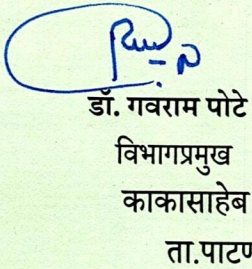 डॉ. गवराम पोटे
विभागप्रमुख
काकासाहेब
ता.पाटण